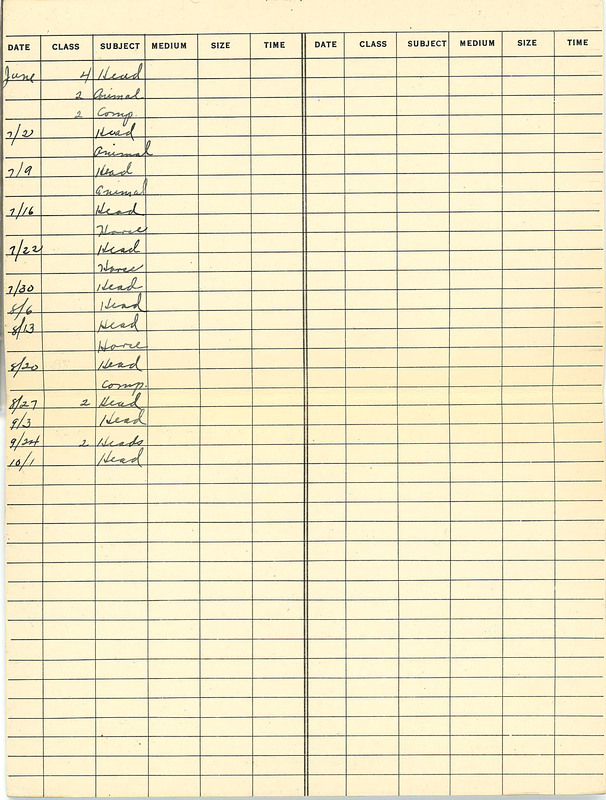 DATE CLASS SUBJECT MEDIUM SIZE TIME DATE CLASS SUBJECT MEDIUM SIZE TIME
June 4 Head
2 Animal
2 Comp.
7/2 Head
Animal
7/9 Head
Animal
7/16 Head
Horse
7/22 Head
Horse
7/30 Head
8/6 Head
8/13 Head
Horse
8/20 Head
Comp.
8/27 2 Head
9/3 Head
9/24 2 Heads
10/1 Head